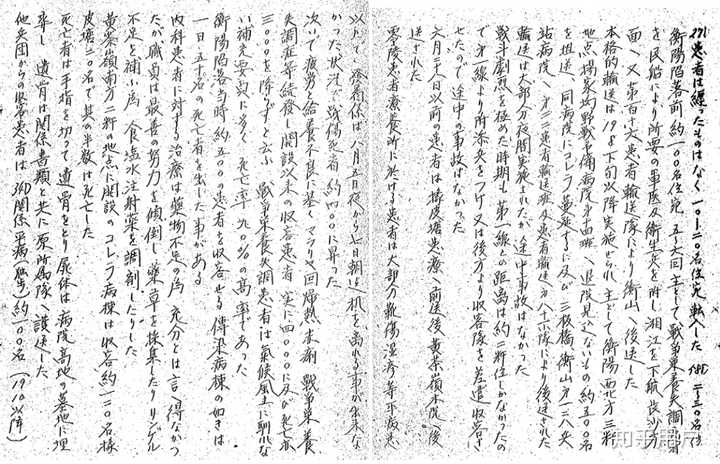 患者は纏ったものはなく一〇—二〇名位宛転入した
衡陽陥落前約一〇〇名位宛五、六回主として戦争栄養失調
を民船により所要の軍医及衛生兵を附し湘江を下航長沙方
面へ又第百六患者輸送隊により衡山へ後送した
本格的輸送は19/8下旬以降実施せられ主として衡陽西北方三粁
地点楊家坳野戦予備病院第 班へ退院見込ないもの約五〇〇名
を担送、同病院にコレラ蔓延するに及び三板橋、衡山方二八兵
站病院へ 患者輸送班及患者輸送 八十六隊により後送された
輸送は大部分夜間実施されたが途中事故はなかった
戦斗劇烈を極めた時期も第一線との距離は約二粁位しかなかったの
で第一線より附添兵をつけ又は後方より収容隊を差遣収容さ
せたので途中の事故はなかった
六月三十日以前の患者は 皮塘患療へ前送後黄茶嶺本院へ後
送された
零陵患者療養所に於ける患者は大部分靴傷湿疹等平病患
以て 係は八月五日夜から七日朝は机を離れる事が出来な
かった状況で戦傷死者約四〇〇に昇った
次いで疲労と給養不良に基くマラリヤ回帰熱赤痢戦争栄養
失調症等続発し開設以来の収容患者実に四〇〇〇に及び死亡亦
三〇〇〇を降らずと云ふ 戦争栄養失調患者は気候風土に馴れな
い補充要員に多く死亡率九〇%の高率であった
衡陽陥落当時約五〇〇の患者を収容せる伝染病棟の如きは
一日五十名の死亡者を出した事がある
内科患者に対する治療は薬物不足の為充分とは言ひ得なかっ
たが職員は最善の努力を傾倒し薬草を採集したりリンゲル
不足を補ふ為食塩水注射薬を調剤したりした
黄茶嶺南方二粁の地点に開設のコレラ病棟は収容約一二〇名楳
皮塘二〇名で其の半数は死亡した
死亡者は手指を切って遺骨をとり屍体は病院高地の墓地に埋
葬し遺骨は関係書類と共に原所属隊へ護送した
他兵団からの収容患者は34D関係平病 約一〇〇名（19/10以降）
知乎用户